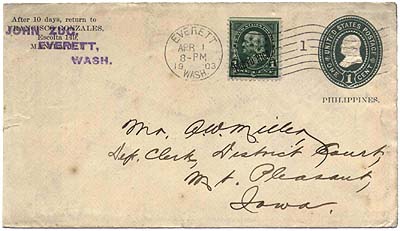 After 10 days, return to
FRANCISCO GONZALES,
Escolta 140,
JOHN ZUG.
EVERETT,
WASH.
EVERETT
APR 1
8-PM
1903
WASH.
1
UNITED STATES POSTAGE
1 CENT
PHILIPPINES.
Mr. A.W. Miller,
Dep. Clerk, District Court,
Mt. Pleasant,
Iowa.